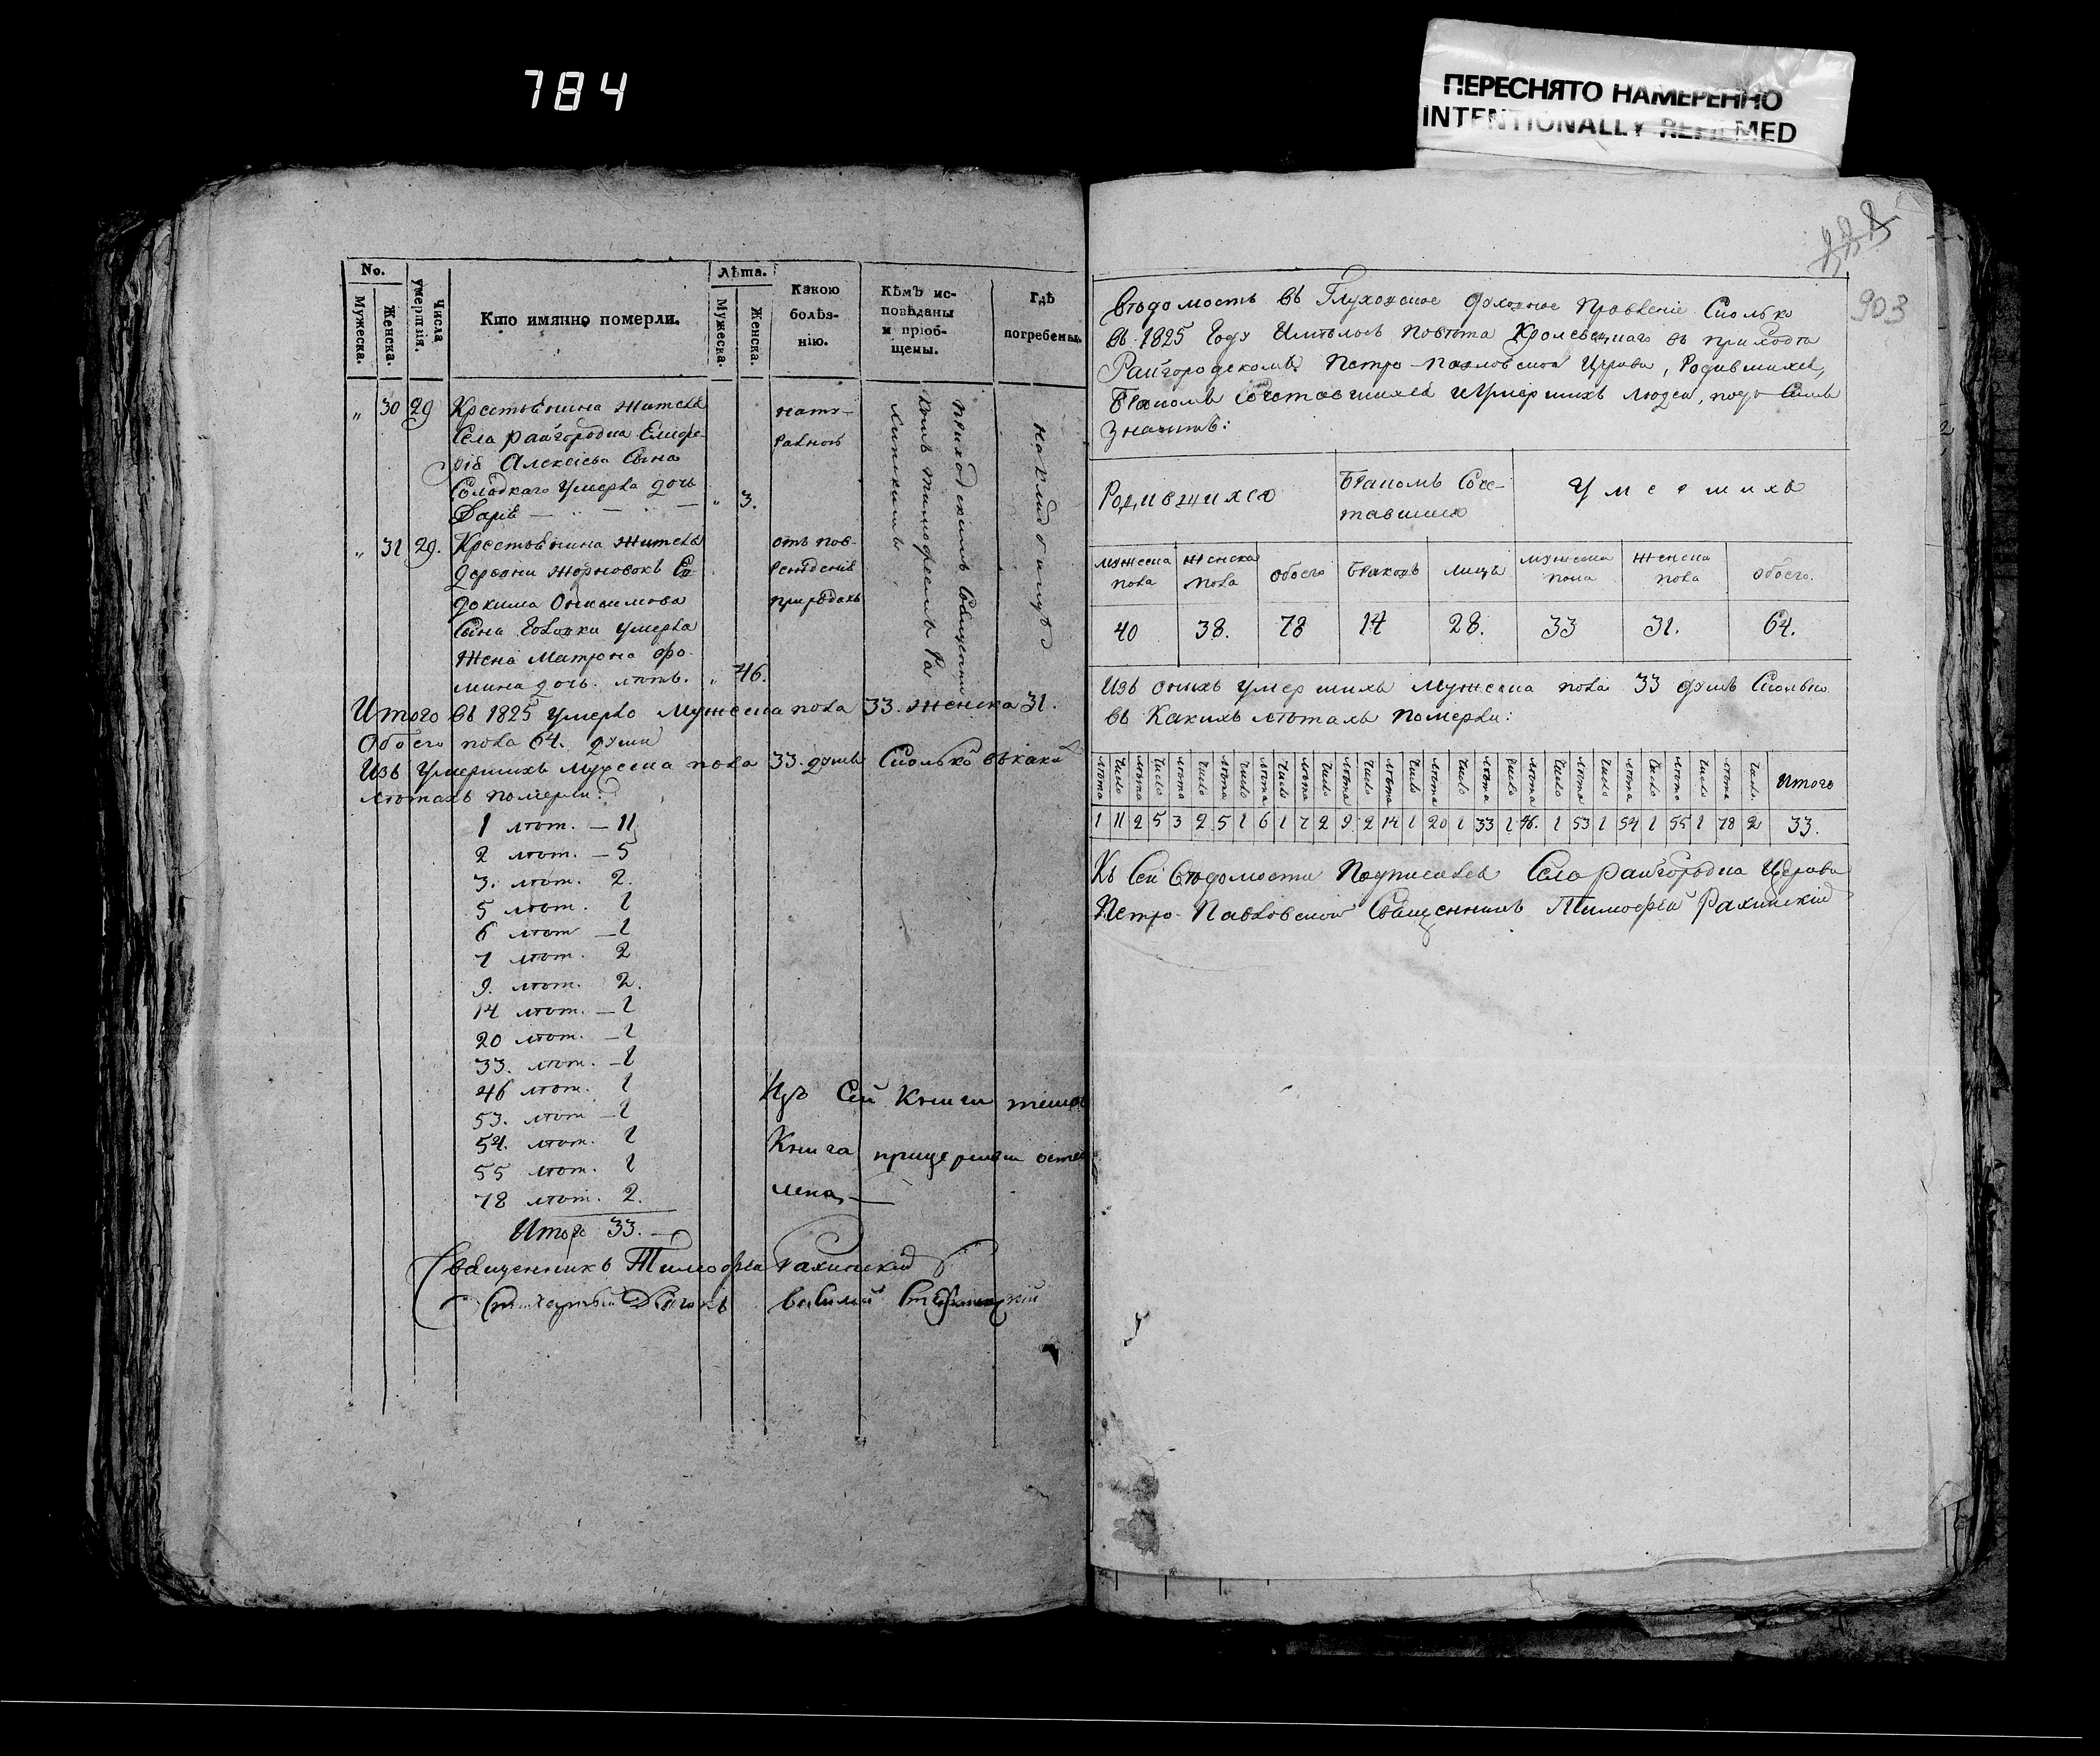 784
ПЕРЕСНЯТО НАМЕРЕННО
INTENTIONALLY REFILMED
No.
Мужеска.
Женска.
Числа умершія.
Кто имянно померли.
Лѣта.
Мужеска.
Женска.
Какою болѣз-
нію.
Кѣмъ ис-
повѣданы
и пріоб-
щены.
Гдѣ
погребены.
" 30 29 Крестьянина жителя нату-
Села Райгородка Елифе- ральною
рія Алексіева Сына
Солодкаго умерла дочь
Дарія — " — — " 3.
" 31 29. Крестьянина жителя отъ пов-
деревни Жорновокъ Ев- режденія
докима Онисимова при родахъ
Сына умерла
жена Матрона Фо-
мина дочь. лѣтъ. " 46.
Приходскимъ Священни
комъ Тимофеемъ Ра
хинскимъ
на кладбищѣ
Итого въ 1825 умерло мужеска пола 33. женска 31.
Обоего пола 64. души
Изъ умершихъ мужеска пола 33. душъ Сколько въ каки
лѣтахъ померли:
1 лѣт. — 11
2 лѣт. — 5
3. лѣт. 2.
5 лѣт. 1
6 лѣт — 1
7 лѣт. 2
9. лѣт. 2.
14 лѣт. — 1
20 лѣт. — 1
33. лѣт. — 1
46 лѣт. 1
53. лѣт — 1
54. лѣт. 1
55 лѣт. 1
78 лѣт. 2.
Итого 33. —
Изъ Сей Книги
Книга при церкви остав
лена, —
Священникъ Тимофей Рахинскій
Дьячокъ
903
Вѣдомость въ Глуховское духовное Правленіе Сколько
въ 1825 Году Имѣлось Повѣта Кролевецкаго въ приходѣ
Райгородскомъ Петро-Павловской Церкви, Родившихся,
Бракомъ Сочетавшихся и Умершихъ людей,подъ Симъ
Значитъ:
Родившихся
Бракомъ Соче-
тавшихся
Умершихъ
мужеска пола
женска пола
обоего
Браковъ
лицъ
мужеска пола
женска пола
обоего.
40 38. 78 14 28. 33 31. 64.
Изъ онихъ умершихъ мужеска пола 33 душъ Сколько
въ Какихъ лѣтахъ Померли:
лѣта число лѣта число лѣта число лѣта число лѣта число лѣта число лѣта число лѣта число лѣта число лѣта число лѣта число лѣта число лѣта число лѣта число лѣта число Итого
1 11 2 5 3 2 5 1 6 1 7 2 9. 2 14 1 20 1 33 1 46. 1 53 1 54 1 55 1 78 2 33.
Къ Сей Вѣдомости Подписался Села Райгородка Церкви
Петро-Павловской Священникъ Тимофей Рахинскій